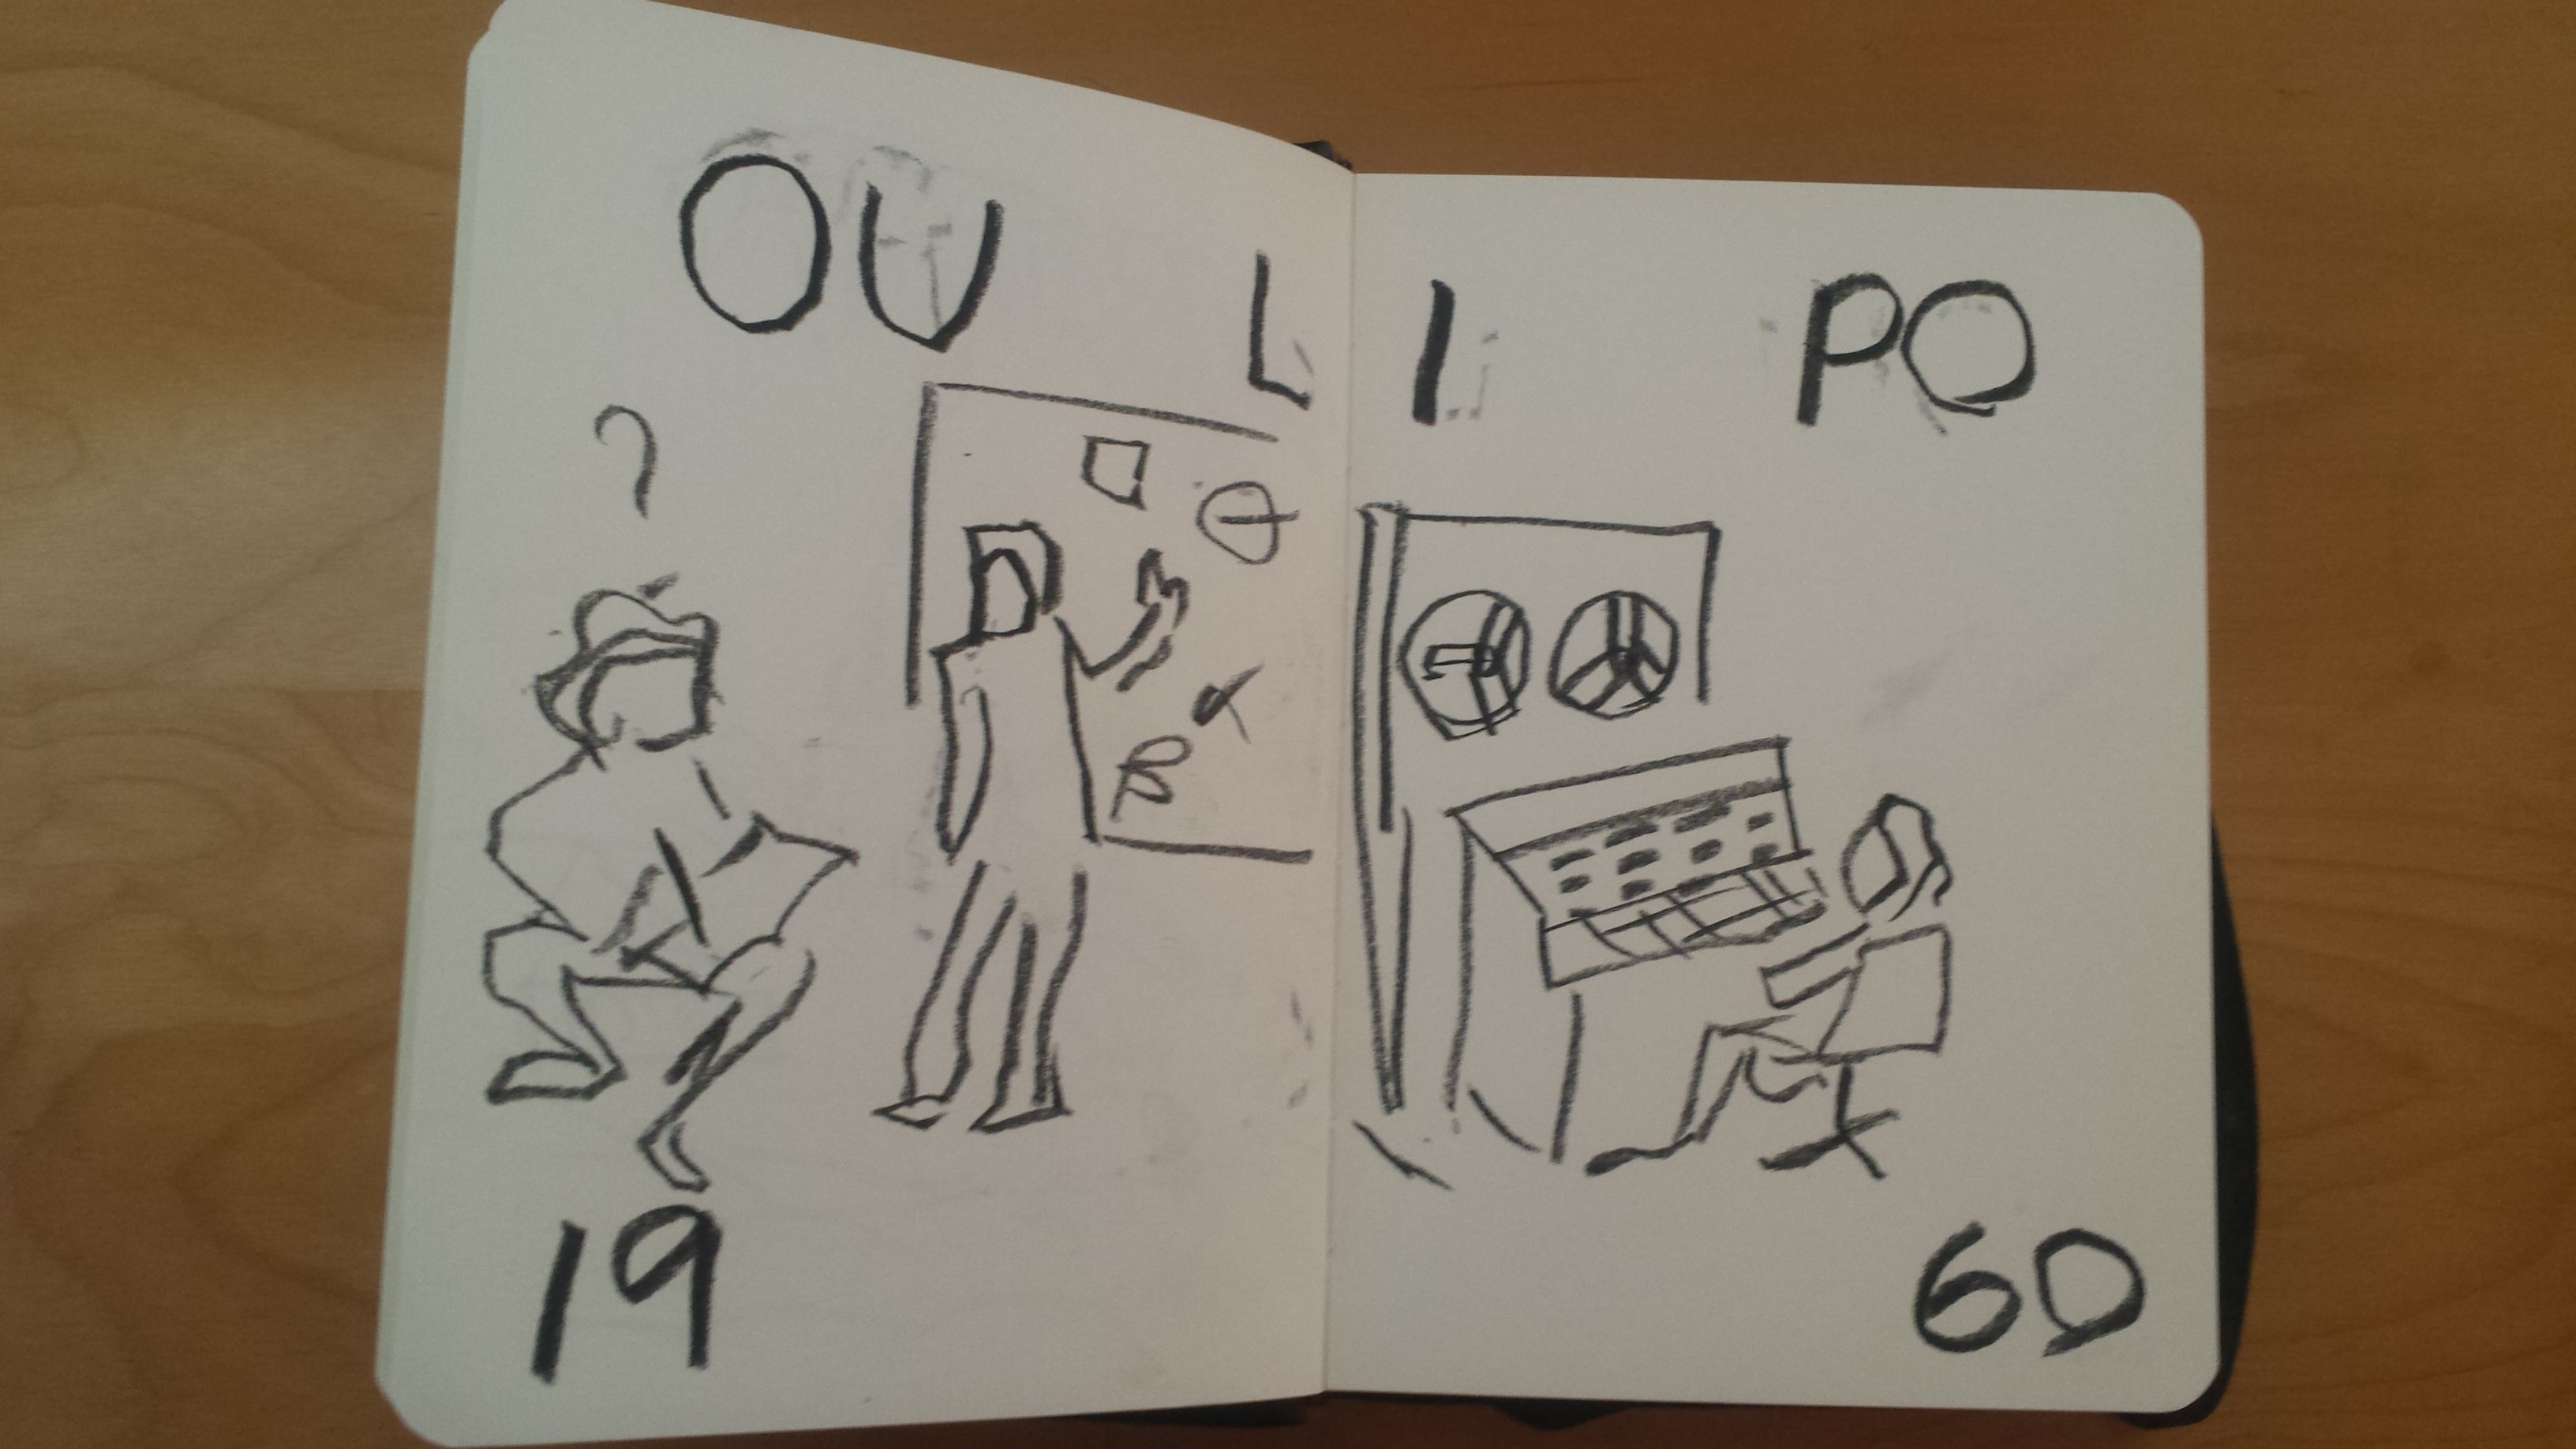 OU LI PO
?
α
β
19 60